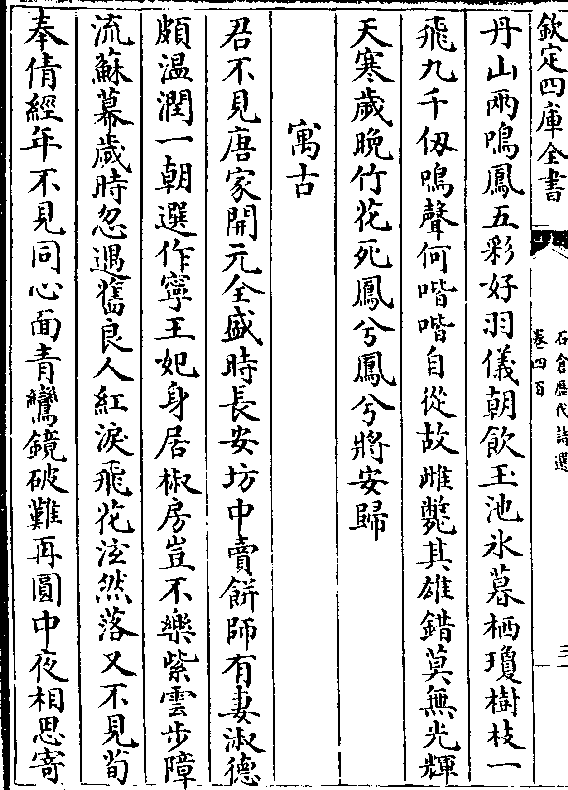 欽定四庫全書
石倉歷代詩選
卷四百
三
丹山兩鳴鳳五彩好羽儀朝飲玉池氷暮栖瓊樹枝一
飛九千仭鳴聲何喈喈自從故雌斃其雄錯莫無光輝
天寒歲晚竹花死鳳兮鳳兮將安歸
寓古
君不見唐家開元全盛時長安坊中賣餅師有妻淑德
頗温潤一朝選作寧王妃身居椒房豈不樂紫雲步障
流蘇幕歲時忽遇舊良人紅淚飛花泫然落又不見荀
奉倩經年不見同心面青鸞鏡破難再圓中夜相思寄